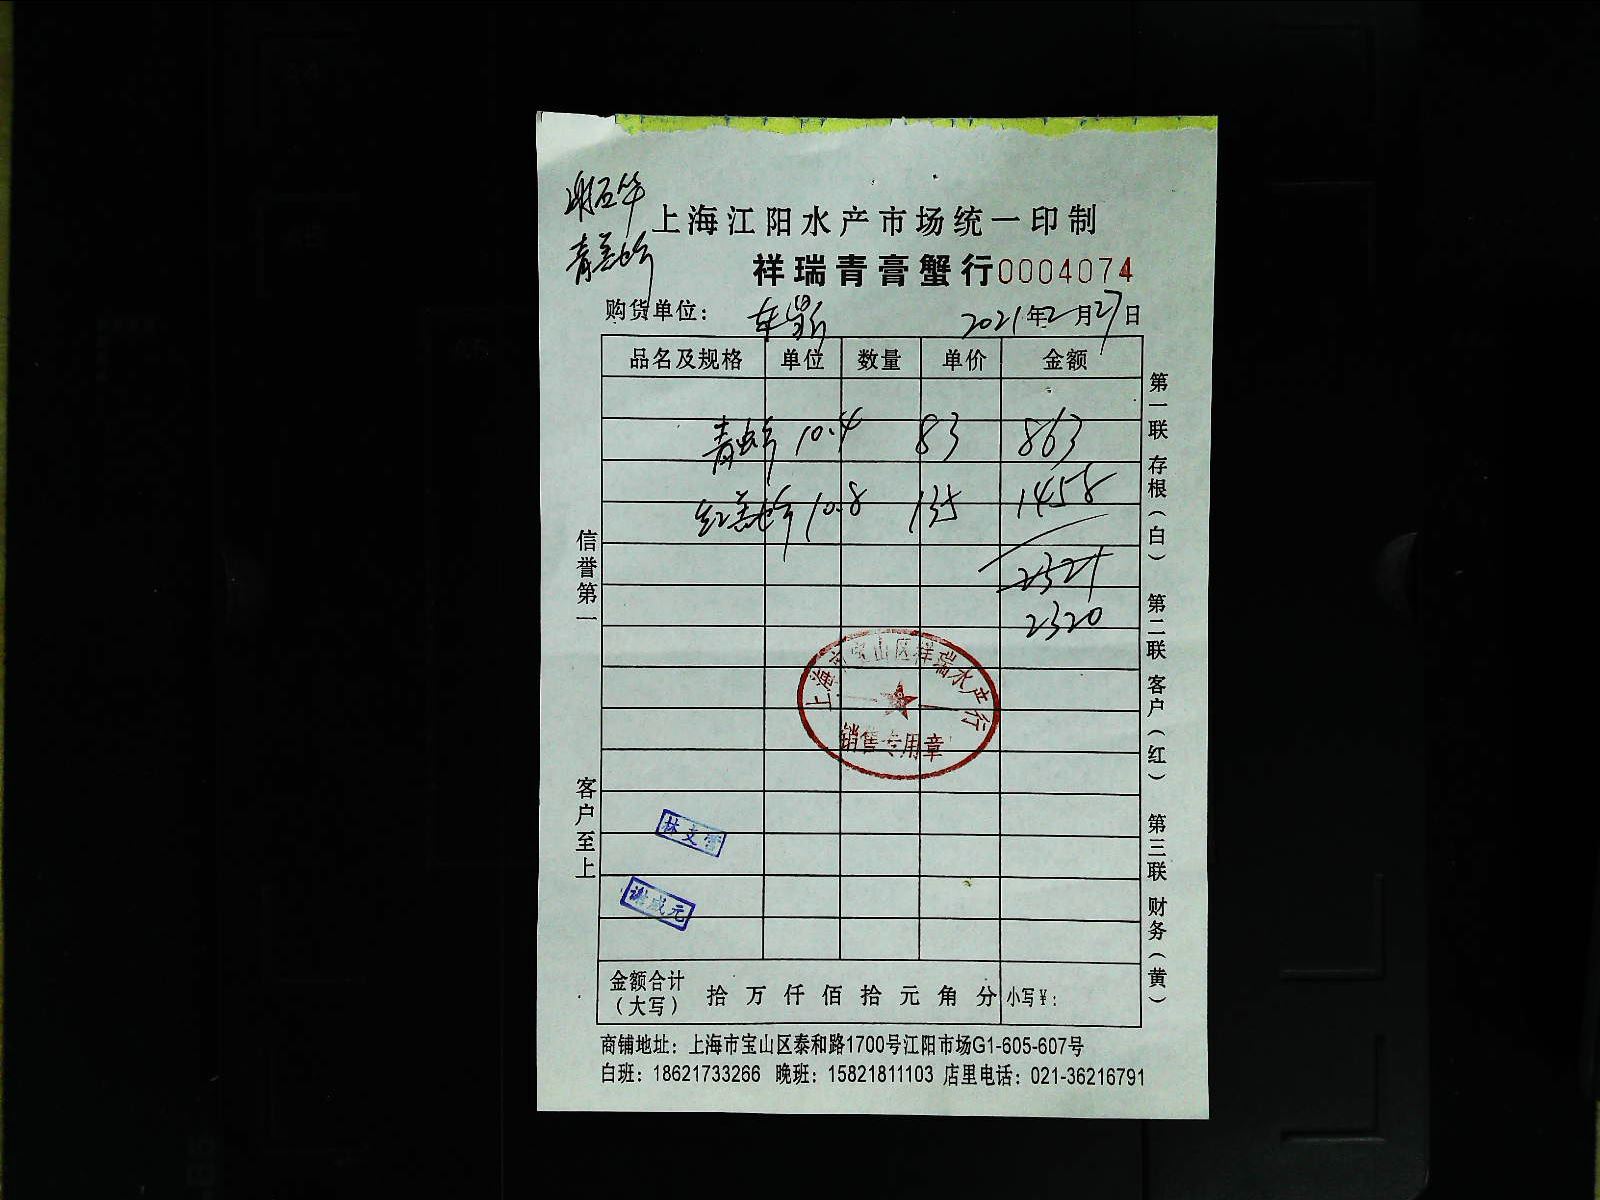 上海江阳水产市场统一印制
祥瑞青膏蟹行0004074
购货单位：
2021年2月27日
品名及规格 单位 数量 单价 金额
青 10.4 83 863
红膏 10.8 135 1458
2321
2320
上海市宝山区祥瑞水产行
销售专用章
林文
谢成元
金额合计（大写） 拾 万 仟 佰 拾 元 角 分 小写¥：
商铺地址：上海市宝山区泰和路1700号江阳市场G1-605-607号
白班：18621733266 晚班：15821811103 店里电话：021-36216791
信誉第一 客户至上
第一联 存根（白） 第二联 客户（红） 第三联 财务（黄）